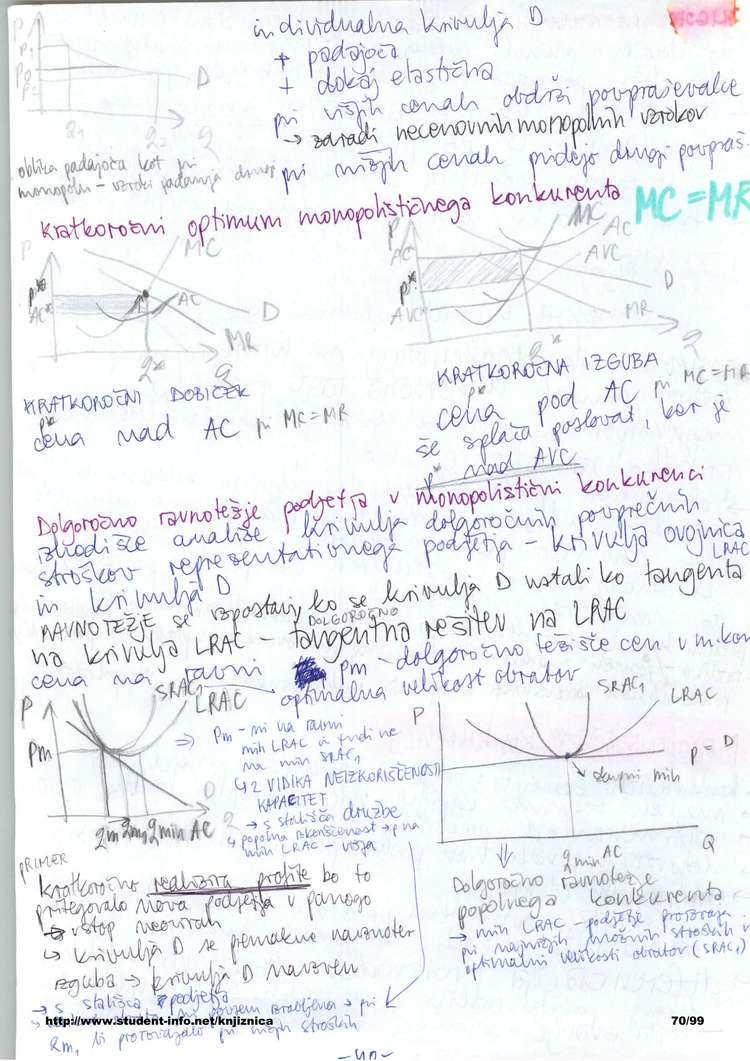 individualna krivulja D
+ padajoča
+ dokaj elastična
pri višjih cenah obdrži povpraševalce
→ zaradi necenovnih monopolnih vzrokov
pri nižjih cenah pridejo drugi povpraš.
P
P1
P0
P2
D
q1
q2
Q
oblika padajoča kot pri
monopolu – vzroki padanja drugi
Kratkoročni optimum monopolističnega konkurenta MC = MR
P
MC
P*
AC*
AC
D
MR
q*
Q
KRATKOROČNI DOBIČEK
P*
cena nad AC pri MC = MR
P
MC
AC
AVC
AC*
P*
AVC*
D
MR
q*
Q
KRATKOROČNA IZGUBA
P*
cena pod AC pri MC = MR
še splača poslovat, ker je
P* nad AVC
Dolgoročno ravnotežje podjetja v monopolistični konkurenci
izhodišče analize krivulja dolgoročnih povprečnih
stroškov reprezentativnega podjetja – krivulja ovojnica
LRAC
in krivulja D
RAVNOTEŽJE se vzpostavi, ko se krivulja D ustali kot tangenta
na krivulja LRAC – DOLGOROČNO tangentna rešitev na LRAC
cena na ravni Pm – dolgoročno težišče cen v m.kon
optimalna velikost obratov
P
SRAC1
LRAC
Pm
D
qm qm1 qmin AC
Q
⇒ Pm – ni na ravni
min LRAC in tudi ne
na min SRAC1
↳ 2 VIDIKA NEIZKORIŠČENOSTI
KAPACITET
→ s stališča družbe
↳ popolna izkoriščenost → p na
min LRAC – višja
P
SRAC1
LRAC
P = D
skupni min
qmin AC
Q
Dolgoročno ravnotežje
popolnega konkurenta
→ min LRAC – podjetje proizvaja
pri najnižjih množnih stroških
optimalni velikosti obratov (SRAC1)
PRIMER
kratkoročno realizira profite bo to
pritegovalo nova podjetja v panogo
→ vstop neoviran
↳ krivulja D se premakne navznoter
izguba → krivulja D navzven
→ s stališča podjetja
qm, bi proizvajalo pri nižjih stroških
http://www.student-info.net/knjiznica
70/99
– 40 –